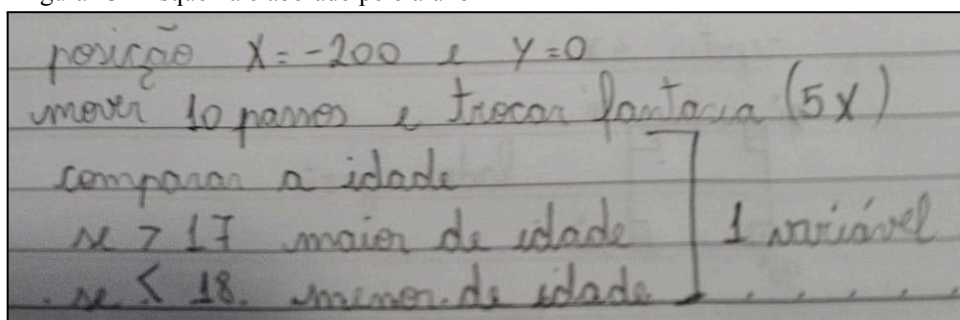 posição X = -200 e y = 0
mover 10 passos e trocar fantasia (5x)
comparar a idade
se > 17 maior de idade
se < 18. menor de idade
1 variável